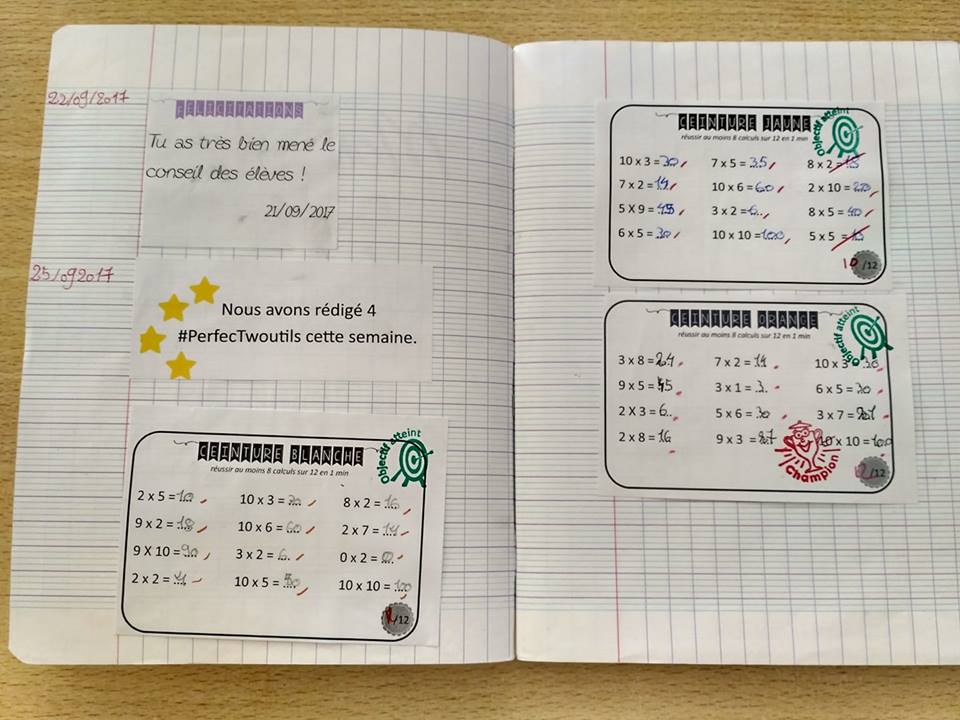 22/09/2017
FÉLICITATIONS
Tu as très bien mené le
conseil des élèves !
21/09/2017
25/092017
Nous avons rédigé 4
#PerfecTwoutils cette semaine.
CEINTURE BLANCHE
réussir au moins 8 calculs sur 12 en 1 min
Objectif atteint
2 x 5 = 10 10 x 3 = 30 8 x 2 = 16
9 x 2 = 18 10 x 6 = 60 2 x 7 = 14
9 X 10 = 90 3 x 2 = 6 0 x 2 = 0
2 x 2 = 4 10 x 5 = 50 10 x 10 = 100
/12
CEINTURE JAUNE
réussir au moins 8 calculs sur 12 en 1 min
Objectif atteint
10 x 3 = 30 7 x 5 = 35 8 x 2 =
7 x 2 = 14 10 x 6 = 60 2 x 10 = 20
5 X 9 = 45 3 x 2 = 6 8 x 5 = 40
6 x 5 = 30 10 x 10 = 100 5 x 5 =
10/12
CEINTURE ORANGE
réussir au moins 8 calculs sur 12 en 1 min
Objectif atteint
3 x 8 = 24 7 x 2 = 14 10 x 3 30
9 x 5 = 45 3 x 1 = 3 6 x 5 = 30
2 X 3 = 6 5 x 6 = 30 3 x 7 = 21
2 x 8 = 16 9 x 3 = 27 10 x 10 = 100
Champion
/12